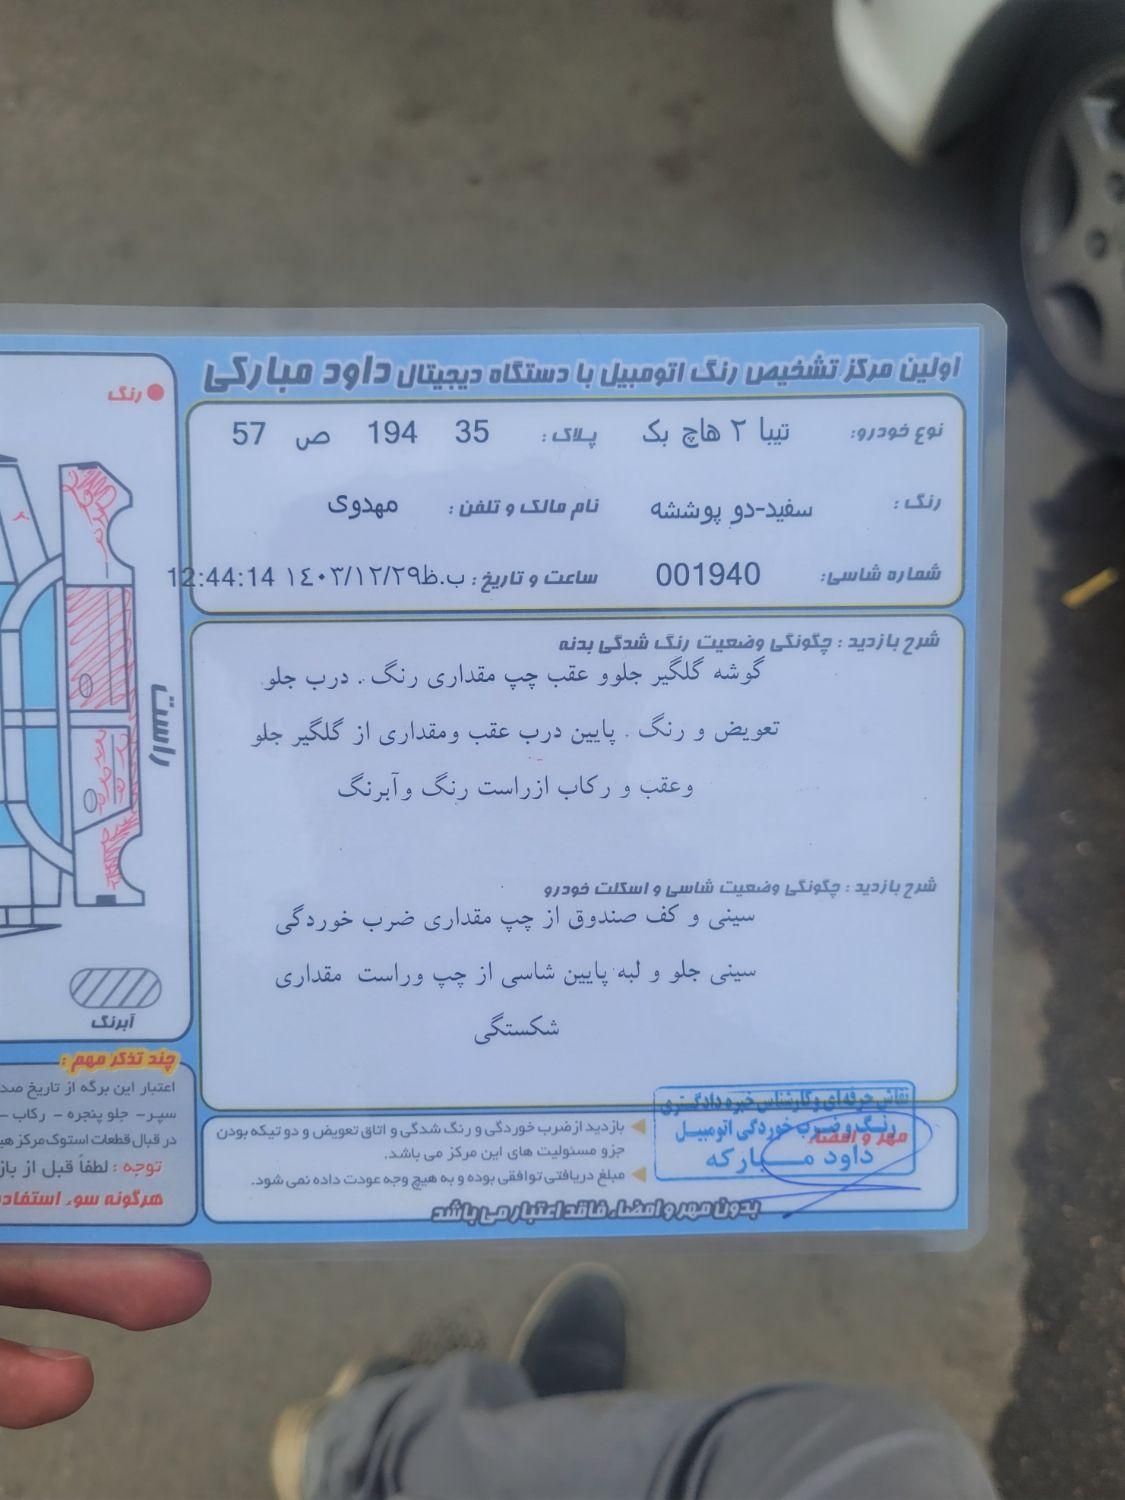 اولین مرکز تشخیص رنگ اتومبیل با دستگاه دیجیتال داود مبارکی
نوع خودرو: تیبا ۲ هاچ بک پلاک: 35 194 ص 57
رنگ: سفید-دو پوششه نام مالک و تلفن: مهدوی
شماره شاسی: 001940 ساعت و تاریخ: ۱٤۰۳/۱۲/۲۹ب.ظ 12:44:14
شرح بازدید: چگونگی وضعیت رنگ شدگی بدنه
گوشه گلگیر جلوو عقب چپ مقداری رنگ. درب جلو
تعویض و رنگ. پایین درب عقب ومقداری از گلگیر جلو
وعقب و رکاب ازراست رنگ وآبرنگ
شرح بازدید: چگونگی وضعیت شاسی و اسکلت خودرو
سینی و کف صندوق از چپ مقداری ضرب خوردگی
سینی جلو و لبه پایین شاسی از چپ وراست مقداری
شکستگی
بازدید از ضرب خوردگی و رنگ شدگی و اتاق تعویض و دو تیکه بودن
جزو مسئولیت های این مرکز می باشد.
مبلغ دریافتی توافقی بوده و به هیچ وجه عودت داده نمی شود.
بدون مهر و امضاء فاقد اعتبار می باشد
مهر و امضاء
نقاش حرفه‌ای و کارشناس خبره دادگستری
رنگ و ضرب خوردگی اتومبیل
داود مبارکه
رنگ
راست
آبرنگ
چند تذکر مهم:
اعتبار این برگه از تاریخ
سپر- جلو پنجره - رکاب -
در قبال قطعات استوک مرکز
توجه: لطفاً قبل از
هرگونه سوء